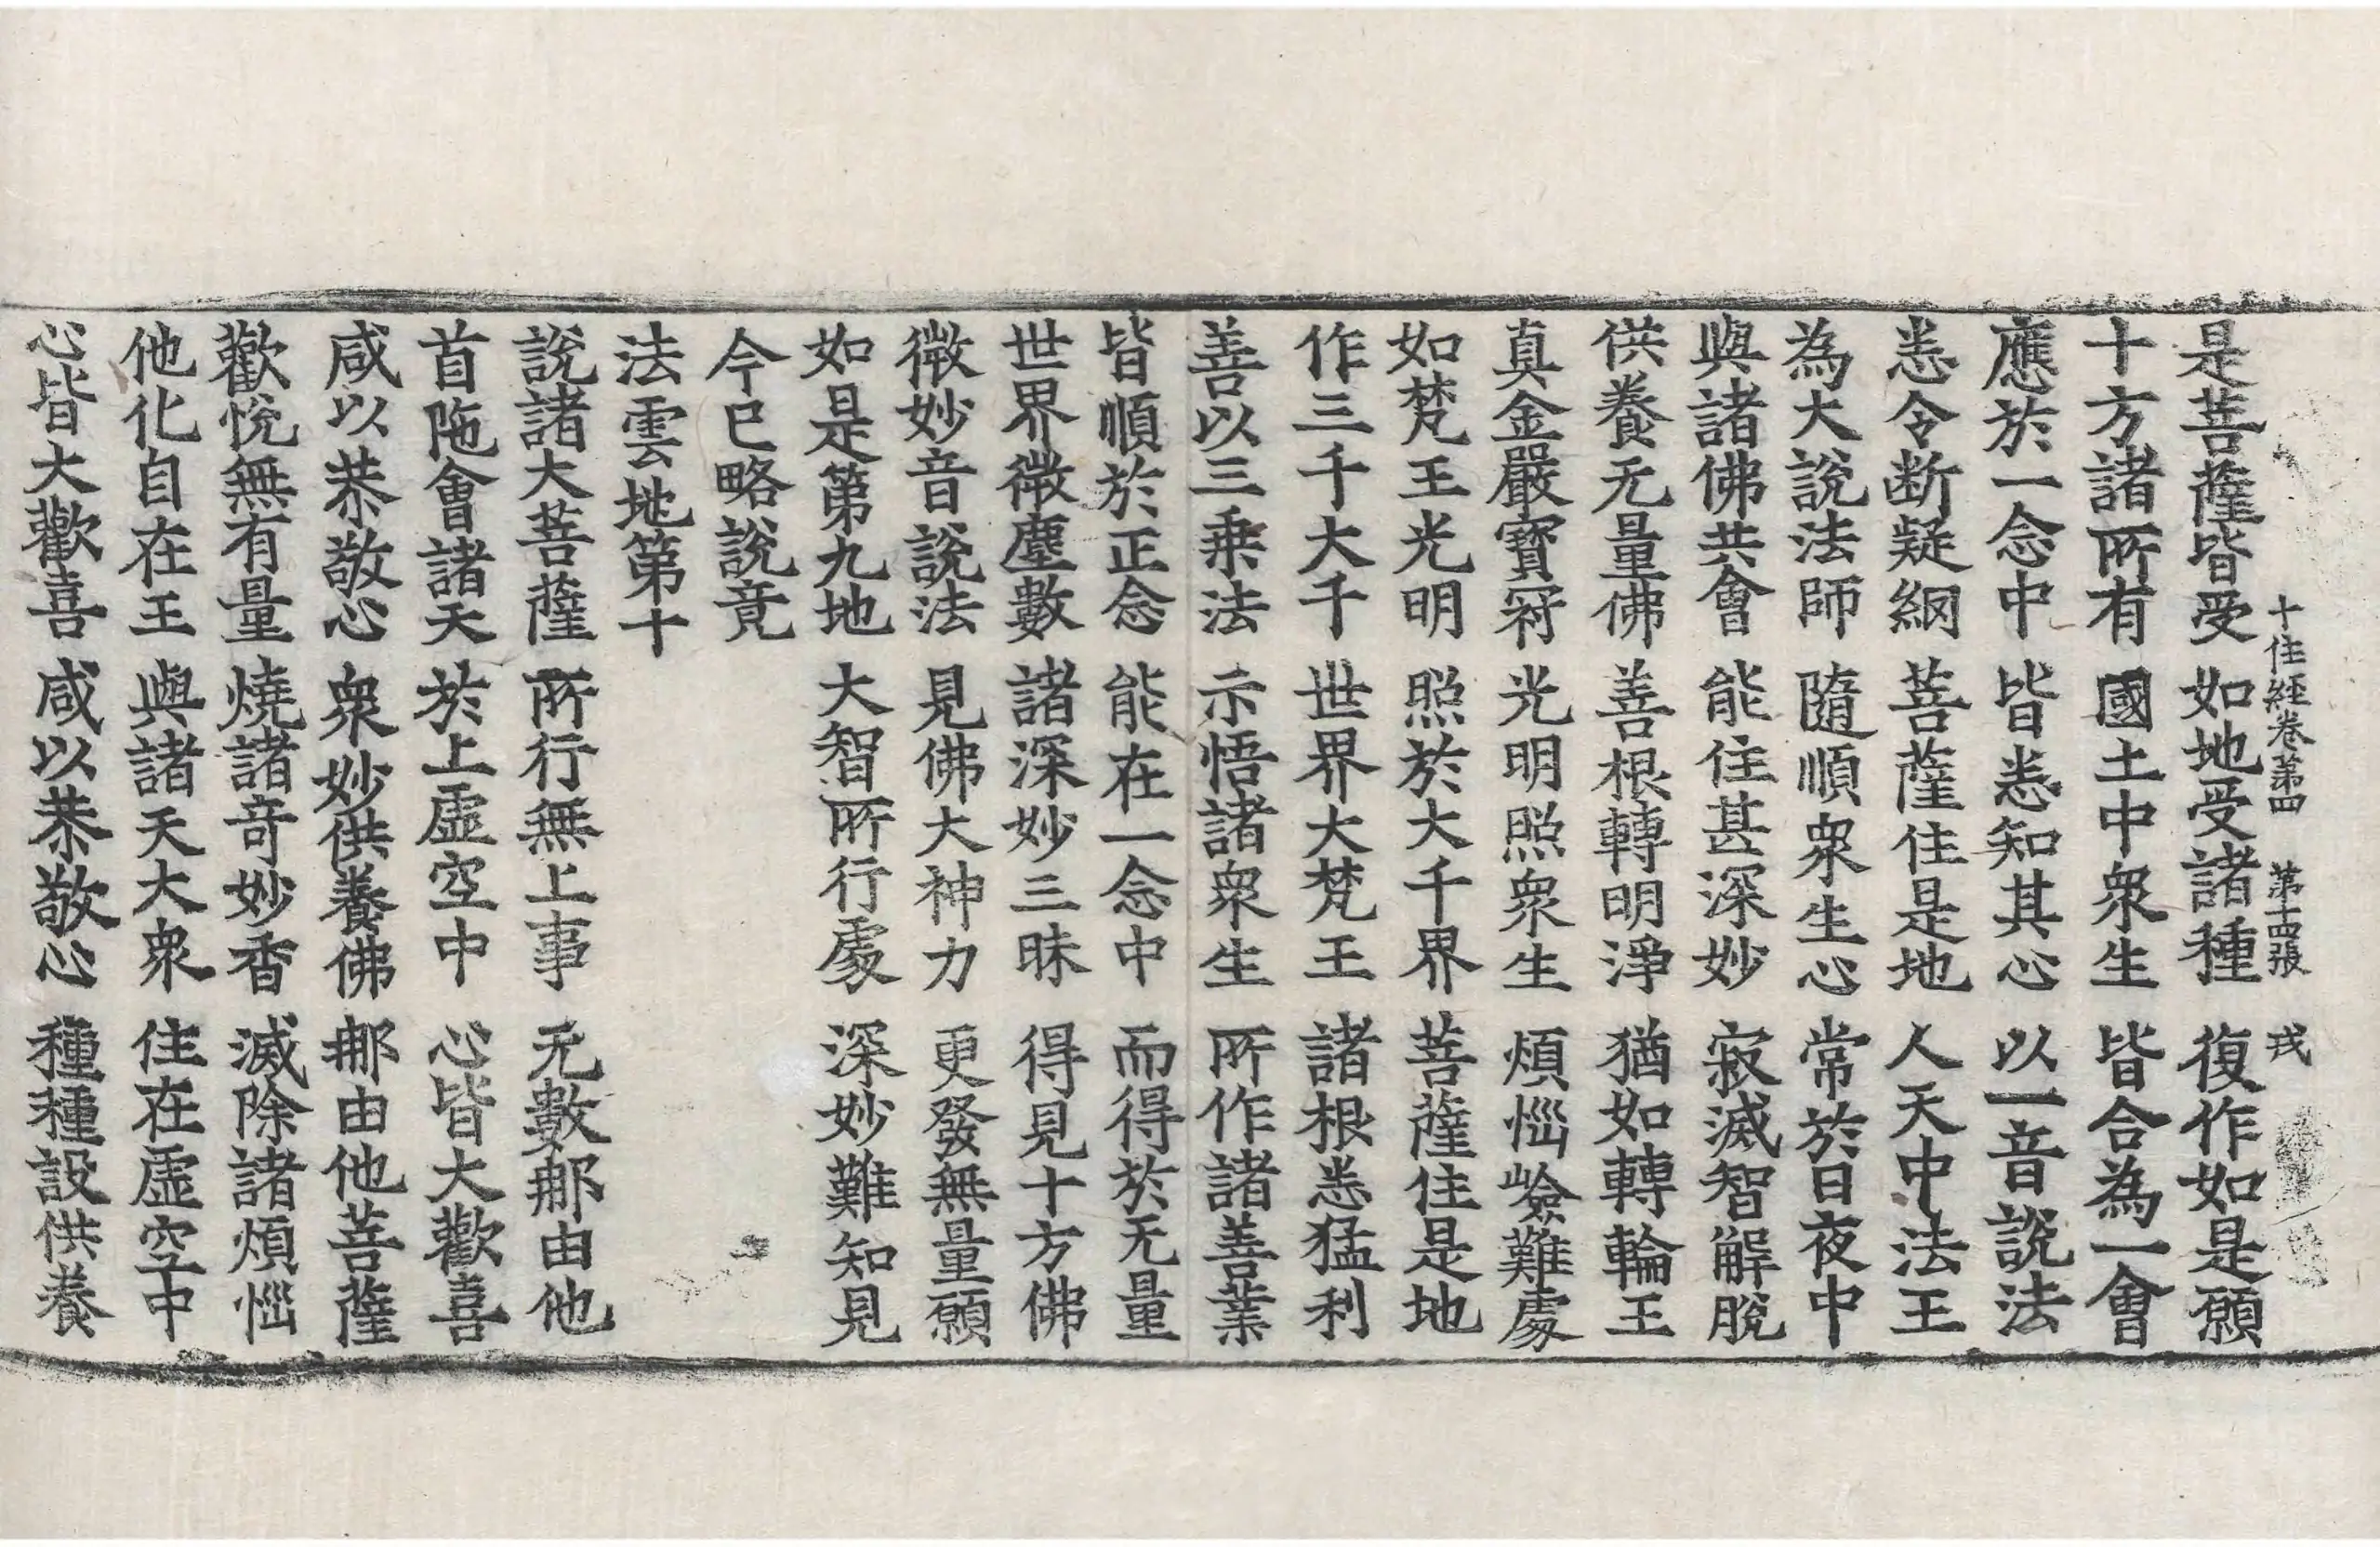 十住經卷第四 第十四張 戎
是菩薩皆受 如地受諸種 復作如是願
十方諸所有 國土中衆生 皆合為一會
應於一念中 皆悉知其心 以一音說法
悉令断疑網 菩薩住是地 人天中法王
為大說法師 隨順衆生心 常於日夜中
與諸佛共會 能住甚深妙 寂滅智解脫
供養无量佛 善根轉明淨 猶如轉輪王
真金嚴寶冠 光明照衆生 煩惱嶮難處
如梵王光明 照於大千界 菩薩住是地
作三千大千 世界大梵王 諸根悉猛利
善以三乗法 示悟諸衆生 所作諸善業
皆順於正念 能在一念中 而得於无量
世界微塵數 諸深妙三昧 得見十方佛
微妙音說法 見佛大神力 更發無量願
如是第九地 大智所行處 深妙難知見
今已略說竟
法雲地第十
說諸大菩薩 所行無上事 无數那由他
首陁會諸天 於上虛空中 心皆大歡喜
咸以恭敬心 衆妙供養佛 那由他菩薩
歡悅無有量 燒諸奇妙香 滅除諸煩惱
他化自在王 與諸天大衆 住在虛空中
心皆大歡喜 咸以恭敬心 種種設供養